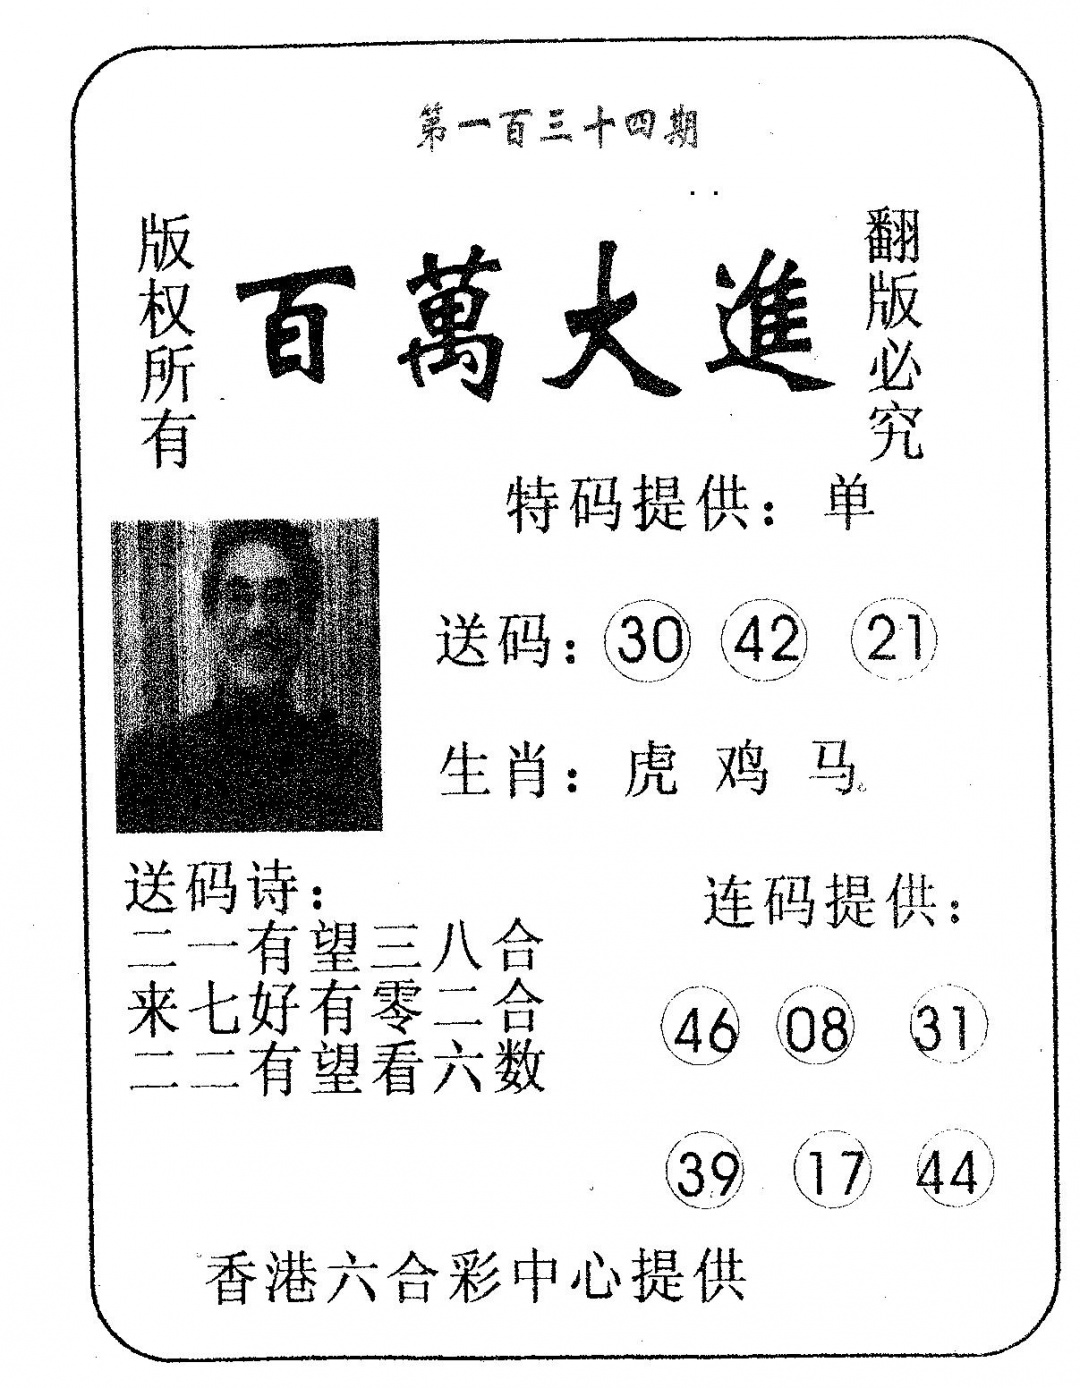 第一百三十四期
版权所有
百萬大進
翻版必究
特码提供：单
送码：30 42 21
生肖：虎 鸡 马
送码诗：
二一有望三八合
来七好有零二合
二二有望看六数
连码提供：
46 08 31
39 17 44
香港六合彩中心提供